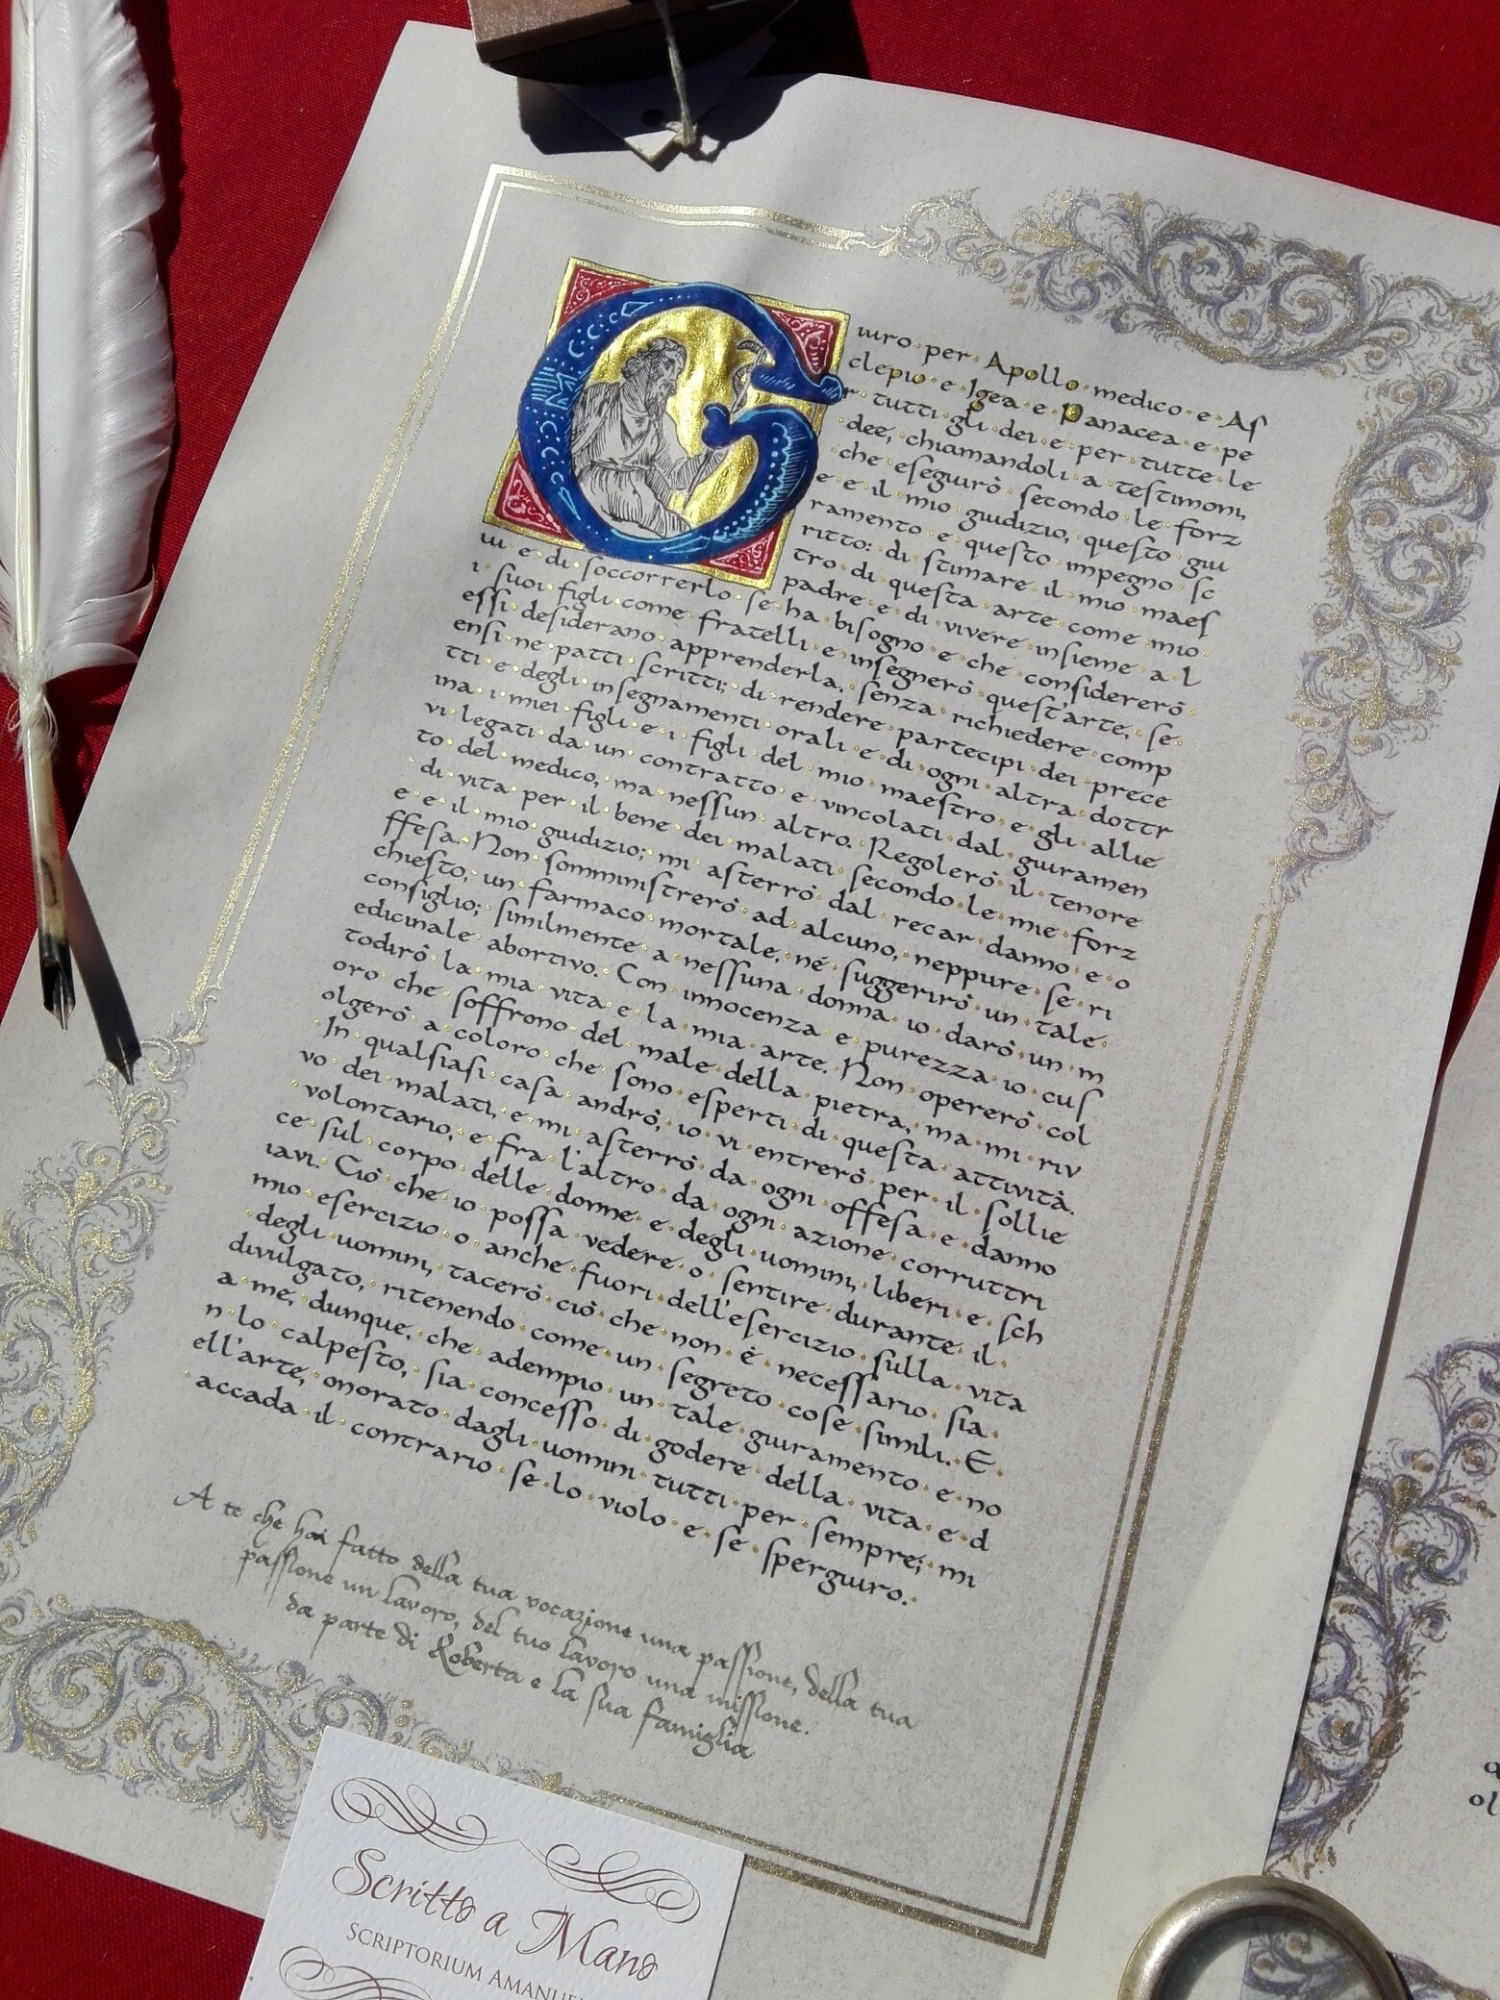 Giuro per Apollo medico e As
clepio e Igea e Panacea e pe
r tutti gli dei e per tutte le
dee, chiamandoli a testimoni,
che eseguirò secondo le forz
e e il mio giudizio, questo giu
ramento e questo impegno sc
ritto: di stimare il mio maes
tro di questa arte come mio
padre e di vivere insieme a l
ui e di soccorrerlo se ha bisogno e che considererò
i suoi figli come fratelli e insegnerò quest'arte, se
essi desiderano apprenderla, senza richiedere comp
ensi ne patti scritti; di rendere partecipi dei prece
tti e degli insegnamenti orali e di ogni altra dottr
ina i miei figli e i figli del mio maestro e gli allie
vi legati da un contratto e vincolati dal giuramen
to del medico, ma nessun altro. Regolerò il tenore
di vita per il bene dei malati secondo le mie forz
e e il mio giudizio; mi asterrò dal recar danno e o
ffesa. Non somministrerò ad alcuno, neppure se ri
chiesto, un farmaco mortale, né suggerirò un tale
consiglio; similmente a nessuna donna io darò un m
edicinale abortivo. Con innocenza e purezza io cus
todirò la mia vita e la mia arte. Non opererò col
oro che soffrono del male della pietra, ma mi riv
olgerò a coloro che sono esperti di questa attività.
In qualsiasi casa andrò, io vi entrerò per il sollie
vo dei malati, e mi asterrò da ogni offesa e danno
volontario, e fra l'altro da ogni azione corruttri
ce sul corpo delle donne e degli uomini, liberi e sch
iavi. Ciò che io possa vedere o sentire durante il
mio esercizio o anche fuori dell'esercizio sulla vita
degli uomini, tacerò ciò che non è necessario sia
divulgato, ritenendo come un segreto cose simili. E
a me, dunque, che adempio un tale giuramento e no
n lo calpesto, sia concesso di godere della vita e d
ell'arte, onorato dagli uomini tutti per sempre; mi
accada il contrario se lo violo e se spergiuro.
A te che hai fatto della tua vocazione una passione, della tua
passione un lavoro, del tuo lavoro una missione.
da parte di Roberta e la sua famiglia
Scritto a Mano
SCRIPTORIUM